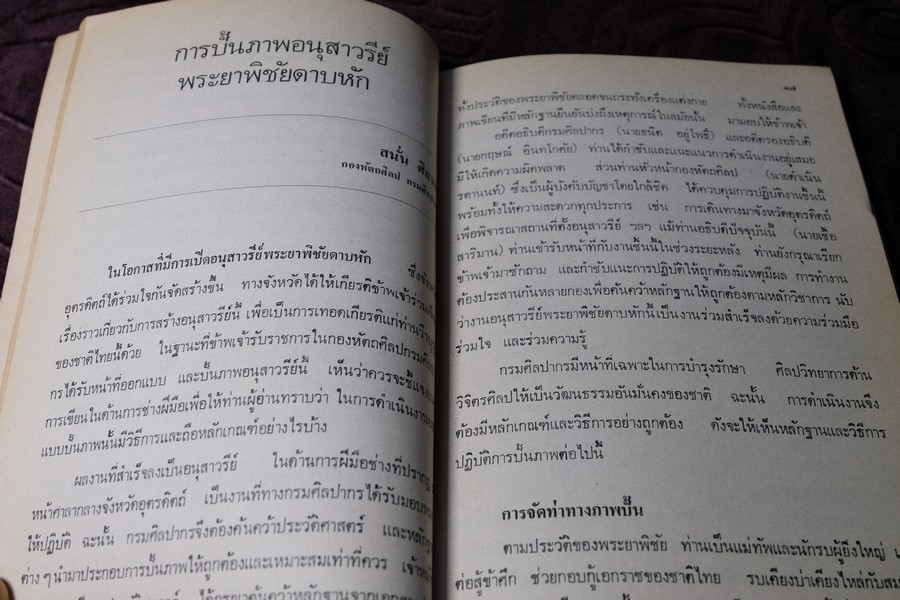 การปั้นภาพอนุสาวรีย์
พระยาพิชัยดาบหัก
สนั่น
กองหัตถศิลป
ในโอกาสที่มีการเปิดอนุสาวรีย์พระยาพิชัยดาบหัก
อุตรดิตถ์ได้ร่วมใจกันจัดสร้างขึ้น ทางจังหวัดได้ให้เกียรติข้าพเจ้าร่วม
เรื่องราวเกี่ยวกับการสร้างอนุสาวรีย์นี้ เพื่อเป็นการเทอดเกียรติแก่ท่าน
ของชาติไทยนี้ด้วย ในฐานะที่ข้าพเจ้ารับราชการในกองหัตถศิลปกรม
กรได้รับหน้าที่ออกแบบ และปั้นภาพอนุสาวรีย์นี้ เห็นว่าควรจะชี้แจง
การเขียนในด้านการช่างฝีมือเพื่อให้ท่านผู้อ่านทราบว่า ในการดำเนินงาน
แบบปั้นภาพนั้นมีวิธีการและถือหลักเกณฑ์อย่างไรบ้าง
ผลงานที่สำเร็จลงเป็นอนุสาวรีย์ ในด้านการฝีมือช่างที่ปรากฏ
หน้าศาลากลางจังหวัดอุตรดิตถ์ เป็นงานที่ทางกรมศิลปากรได้รับมอบ
ให้ปฏิบัติ ฉะนั้น กรมศิลปากรจึงต้องค้นคว้าประวัติศาสตร์ และหลัก
ต่าง ๆ นำมาประกอบการปั้นภาพให้ถูกต้องและเหมาะสมเท่าที่ควร
ได้กรุณาค้นคว้าหลักฐานจากเอกสาร
๑๗
ทั้งประวัติของพระยาพิชัยตลอดจนกระทั่งเครื่องแต่งกาย ทั้งหนังสือและ
ภาพเขียนที่มีหลักฐานยืนยันบ่งถึงเหตุการณ์ในสมัยนั้น มามอบให้ข้าพเจ้า
อดีตอธิบดีกรมศิลปากร (นายธนิต อยู่โพธิ์) และอดีตรองอธิบดี
(นายกฤษณ์ อินทโกศัย) ท่านได้กำชับและแนะแนวการดำเนินงานอยู่เสมอ
มิให้เกิดความผิดพลาด ส่วนท่านหัวหน้ากองหัตถศิลป (นายดำเนิน
รตานนท์) ซึ่งเป็นผู้บังคับบัญชาโดยใกล้ชิด ได้ควบคุมการปฏิบัติงานชิ้นนี้
พร้อมทั้งให้ความสะดวกทุกประการ เช่น การเดินทางมาจังหวัดอุตรดิตถ์
เพื่อพิจารณาสถานที่ตั้งอนุสาวรีย์ ฯลฯ แม้ท่านอธิบดีปัจจุบันนี้ (นายเชื้อ
สาริมาน) ท่านเข้ารับหน้าที่กับงานชิ้นนี้ในช่วงระยะหลัง ท่านยังกรุณาเรียก
ข้าพเจ้ามาซักถาม และกำชับแนะการปฏิบัติให้ถูกต้องมีเหตุมีผล การทำงาน
ต้องประสานกันหลายกองเพื่อค้นคว้าหลักฐานให้ถูกต้องตามหลักวิชาการ นับ
ว่างานอนุสาวรีย์พระยาพิชัยดาบหักนี้เป็นงานร่วมสำเร็จลงด้วยความร่วมมือ
ร่วมใจ และร่วมความรู้
กรมศิลปากรมีหน้าที่เฉพาะในการบำรุงรักษา ศิลปวิทยาการด้าน
วิจิตรศิลปให้เป็นวัฒนธรรมอันมั่นคงของชาติ ฉะนั้น การดำเนินงานจึง
ต้องมีหลักเกณฑ์และวิธีการอย่างถูกต้อง ดังจะให้เห็นหลักฐานและวิธีการ
ปฏิบัติการปั้นภาพต่อไปนี้
การจัดท่าทางภาพปั้น
ตามประวัติของพระยาพิชัย ท่านเป็นแม่ทัพและนักรบผู้ยิ่งใหญ่
ต่อสู้ข้าศึก ช่วยกอบกู้เอกราชของชาติไทย รบเคียงบ่าเคียงไหล่กับสม